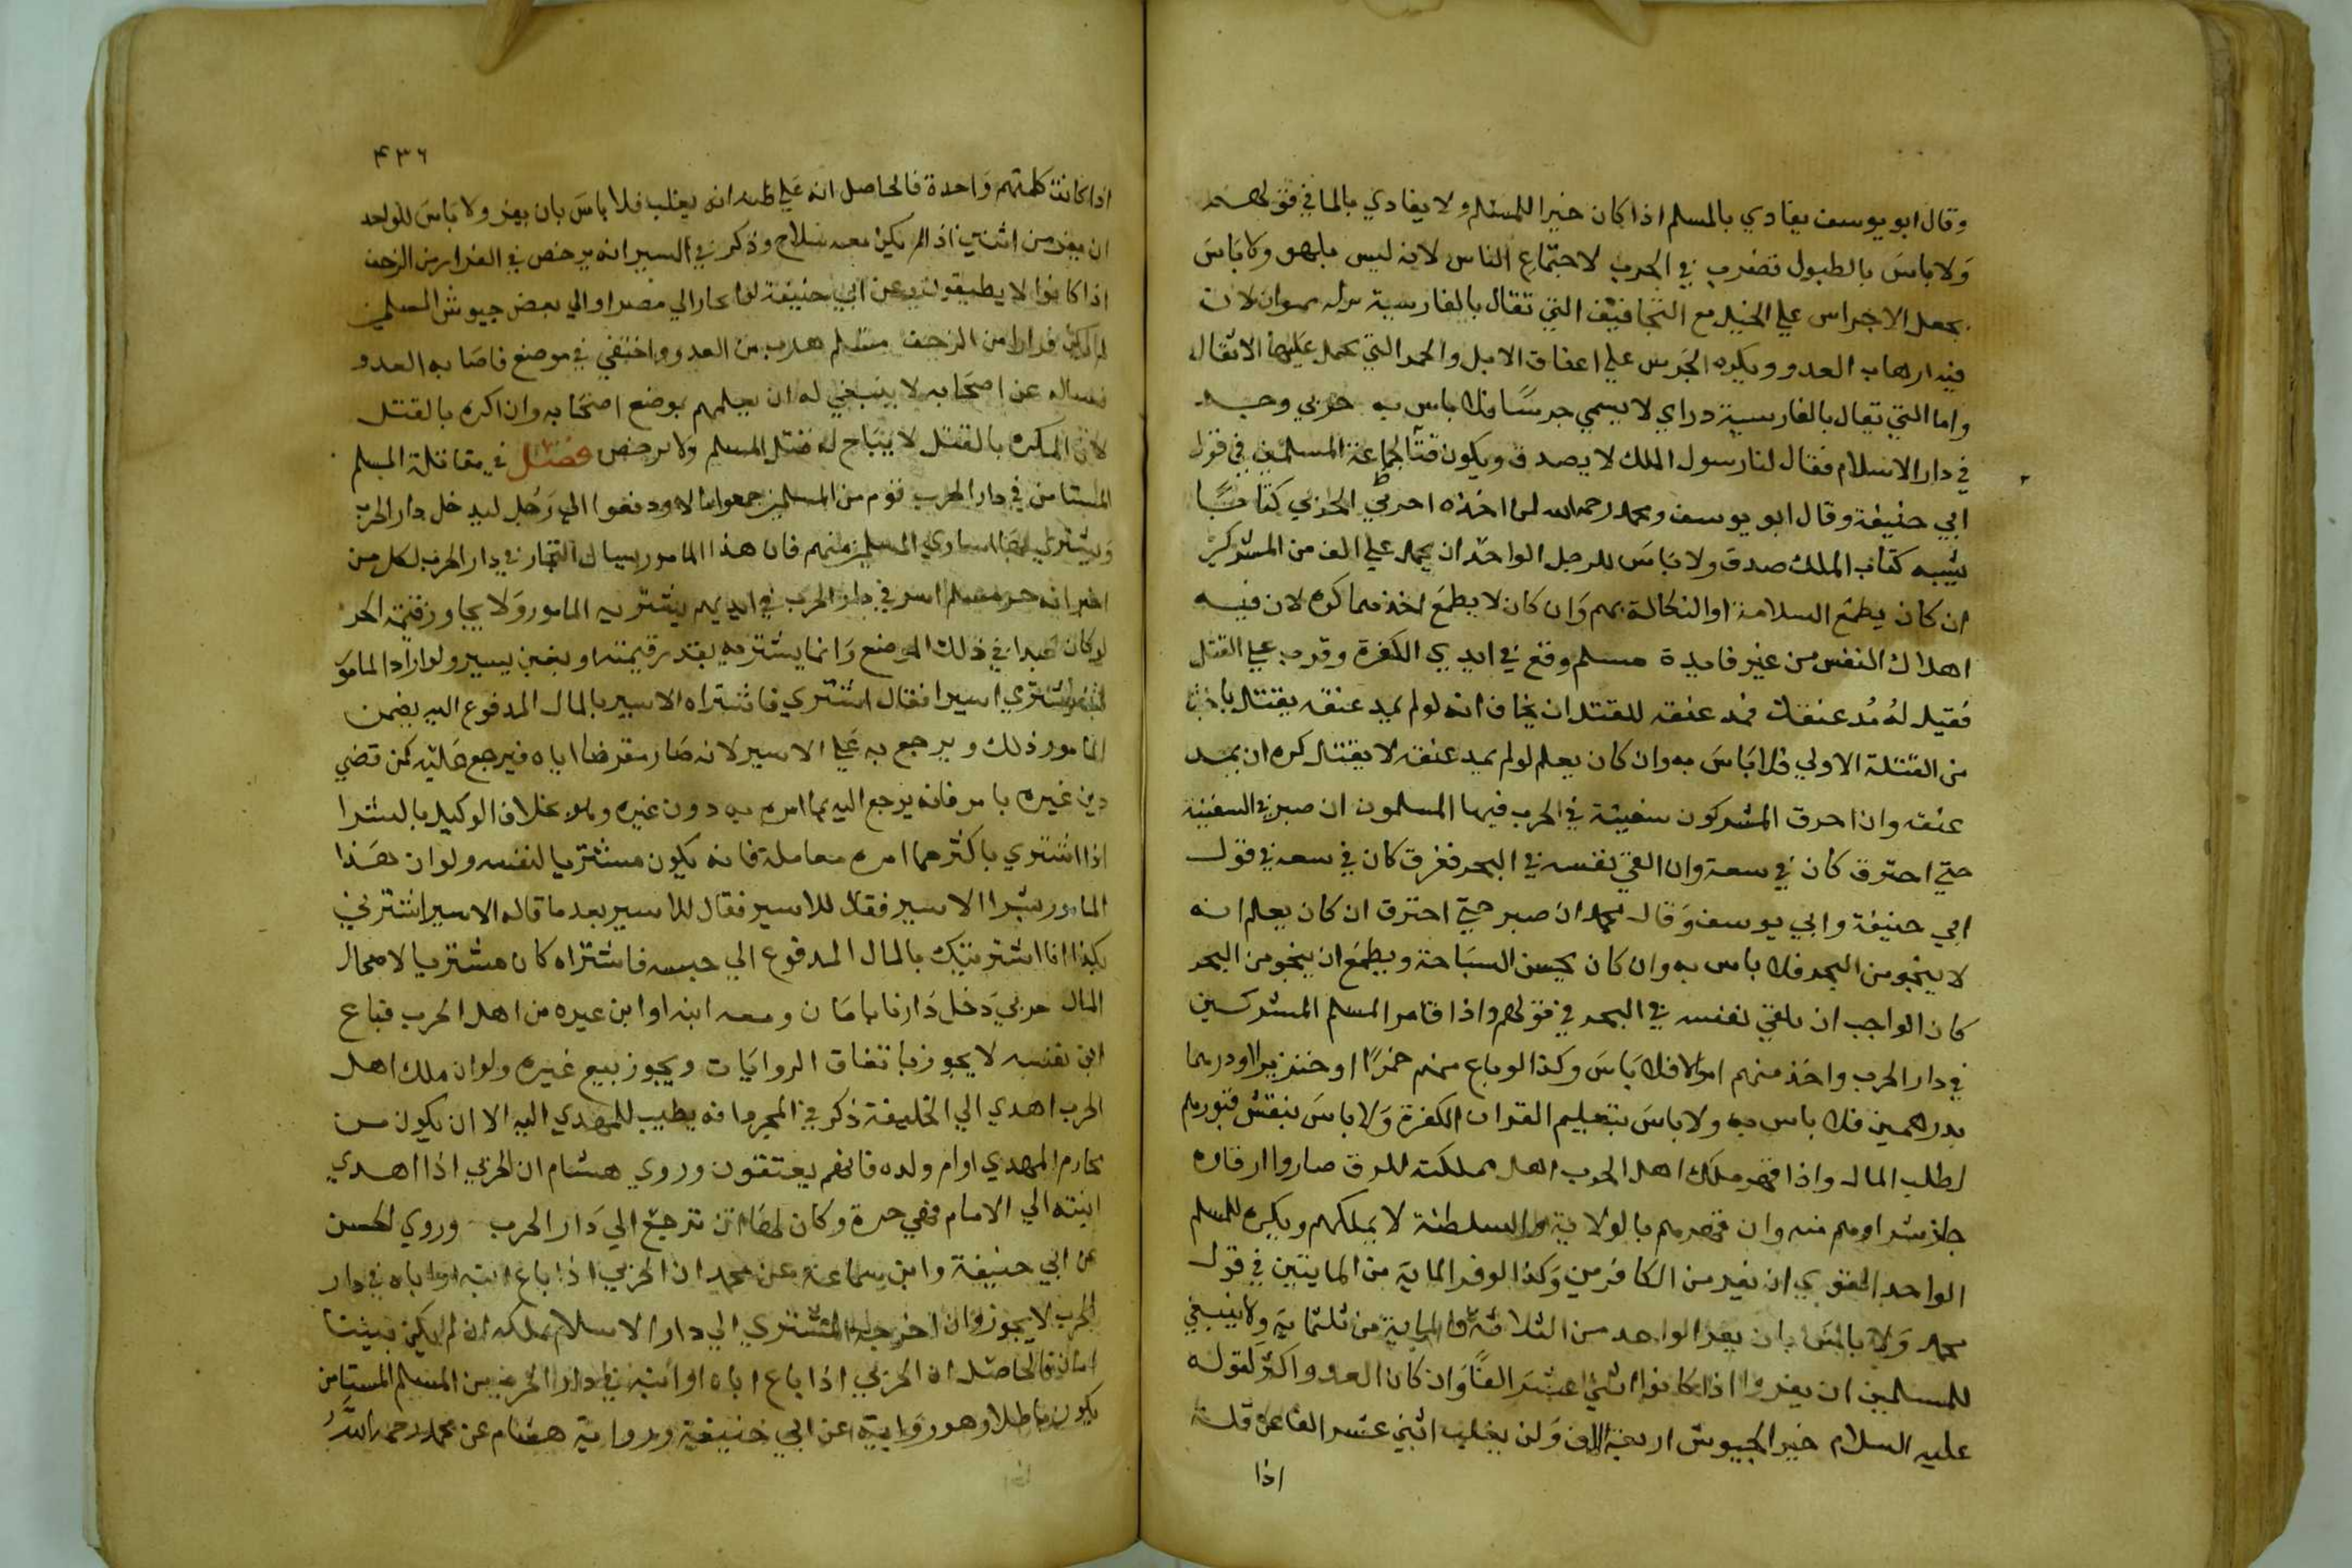 وقال ابو يوسف يفادي بالمسلم اذا كان خيرا للمسلم ولا يفادي بالمال في قولهم
ولا باس بالطبول تضرب في الحرب لاجتماع الناس لانه ليس بلهو ولا باس
بجعل الاجراس علي الخيل مع التجافيف التي تقال بالفارسية لان
فيه ارهاب العدو ويكره الجرس علي اعناق الابل والحمر التي تحمل عليها الاثقال
واما التي تقال بالفارسية دراي لا يسمي جرسا فلا باس به حربي وجد
في دار الاسلام فقال انا رسول الملك لا يصدق ويكون فيئا لجماعة المسلمين في قول
ابي حنيفة وقال ابو يوسف ومحمد رحمه الله لمن اخذه اخرج الحربي كتابا
يشبه كتاب الملك صدق ولا باس للرجل الواحد ان يحمل علي الف من المشركين
ان كان يطمع السلامة او النكاية بهم وان كان لا يطمع احدهما كره لان فيه
اهلاك النفس من غير فايدة مسلم وقع في ايدي الكفرة وقرب علي القتل
فقيل له مد عنقك فمد عنقه للقتل ان يخاف انه لو لم يمد عنقه يقتل باخبث
من القتلة الاولي فلا باس به وان كان يعلم لو لم يمد عنقه لا يقتل كره ان يمد
عنقه واذا حرق المشركون سفينة في الحرب فيها المسلمون ان صبر في السفينة
حتي احترق كان في سعة وان القي نفسه في البحر فغرق كان في سعة في قول
ابي حنيفة وابي يوسف وقال محمد ان صبر حتي احترق ان كان يعلم انه
لا ينجو من البحر فلا باس به وان كان يحسن السباحة ويطمع ان ينجو من البحر
كان الواجب ان يلقي نفسه في البحر في قولهم واذا قامر المسلم المشركين
في دار الحرب واخذ منهم اموالا فلا باس وكذا لو باع منهم خمرا او خنزيرا او درهما
بدرهمين فلا باس به ولا باس بتعليم القران الكفرة ولا باس بنقش قبورهم
لطلب المال واذا قهر ملك اهل الحرب اهل مملكته للرق صاروا ارقاوه
جاز شراوهم منه وان قهرهم بالولاية والسلطنة لا يملكهم ويكره للمسلم
الواحد القوي ان يفر من الكافرين وكذا لو فر الماية من المايتين في قول
محمد ولا باس بان يفر الواحد من الثلاثة والماية من ثلثماية ولا ينبغي
للمسلمين ان يفروا اذا كانوا اثني عشر الفا وان كان العدو اكثر لقوله
عليه السلام خير الجيوش اربعة الاف ولن يغلب اثني عشر الفا عن قلة
اذا
٤٣٦
اذا كانت كلمتهم واحدة فالحاصل انه علي ظنه انه يغلب فلا باس بان يفر ولا باس للواحد
ان يفر من اثنين اذا لم يكن معه سلاح وذكر في السير انه يرخص في الفرار من الزحف
اذا كانوا لا يطيقون وعن ابي حنيفة لو انحاز الي مصر او الي بعض جيوش المسلمين
لم يكن فرارا من الزحف مسلم هرب من العدو واختفي في موضع فاصابه العدو
فساله عن اصحابه لا ينبغي له ان يعلمهم بوضع اصحابه وان اكره بالقتل
لان المكره بالقتل لا يباح له قتل المسلم ولا يرخص فصل في مقاتلة المسلم
المستامن في دار الحرب قوم من المسلمين جمعوا مالا ودفعوا الي رجل ليدخل دار الحرب
ويشتري اساري المسلمين منهم فان هذا المامور يسال التجار في دار الحرب لكل من
اخبر انه حر مسلم اسر في دار الحرب في ايديهم يشتريه المامور ولا يجاوز قيمة الحر
لو كان عبدا في ذلك الموضع وانما يشتريه بقدر قيمته او بغبن يسير ولو اراد المامور
ان يشتري اسيرا فقال اشتري فاشتراه الاسير بالمال المدفوع اليه يضمن
المامور ذلك ويرجع به علي الاسير لانه صار مقرضا اياه فيرجع عليه كمن قضي
دين غيره بامر فانه يرجع اليه بما امره به دون غيره وهو بخلاف الوكيل بالشرا
اذا اشتري باكثر مما امره معاملة فانه يكون مشتريا لنفسه ولو ان هذا
المامور بشرا الاسير فقال للاسير فقال للاسير بعد ما قاله الاسير اشترني
بكذا انا اشتريتك بالمال المدفوع الي حبسه فاشتراه كان مشتريا لاصحاب
المال حربي دخل دارنا بامان ومعه ابنه او ابن غيره من اهل الحرب فباع
ابن نفسه لا يجوز باتفاق الروايات ويجوز بيع غيره ولو ان ملك اهل
الحرب اهدي الي الخليفة ذكر في المجرد انه يطيب للمهدي اليه الا ان يكون من
محارم المهدي او ام ولده فانهم يعتقون وروي هشام ان الحربي اذا اهدي
ابنته الي الامام فهي حرة وكان لها ان ترجع الي دار الحرب وروي الحسن
عن ابي حنيفة وابن سماعة عن محمد ان الحربي اذا باع ابنه او اباه في دار
الحرب لا يجوز وان اخرجه المشتري الي دار الاسلام يملكه ان لم يكن بيننا
امان فالحاصل ان الحربي اذا باع اباه او ابنه في دار الحرب من المسلم المستامن
يكون باطلا وهو رواية عن ابي حنيفة ورواية هشام عن محمد رحمه الله